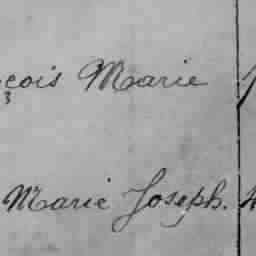 çois Marie
Marie Joseph.